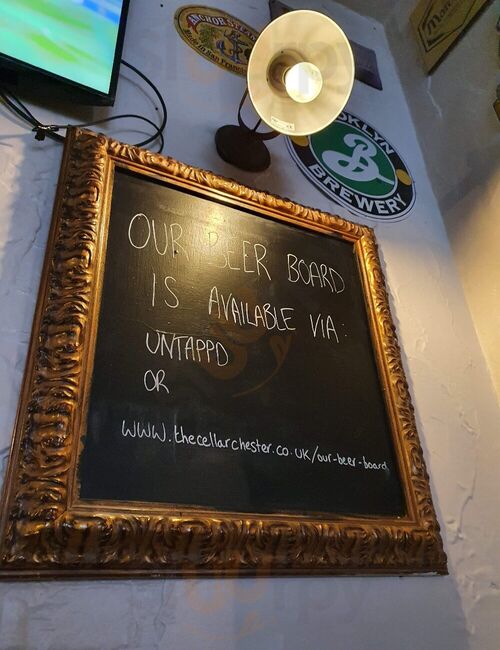 ANCHOR
BROOKLYN
B
BREWERY
OUR BEER BOARD
IS AVAILABLE VIA:
UNTAPPD
OR
www.thecellarchester.co.uk/our-beer-board